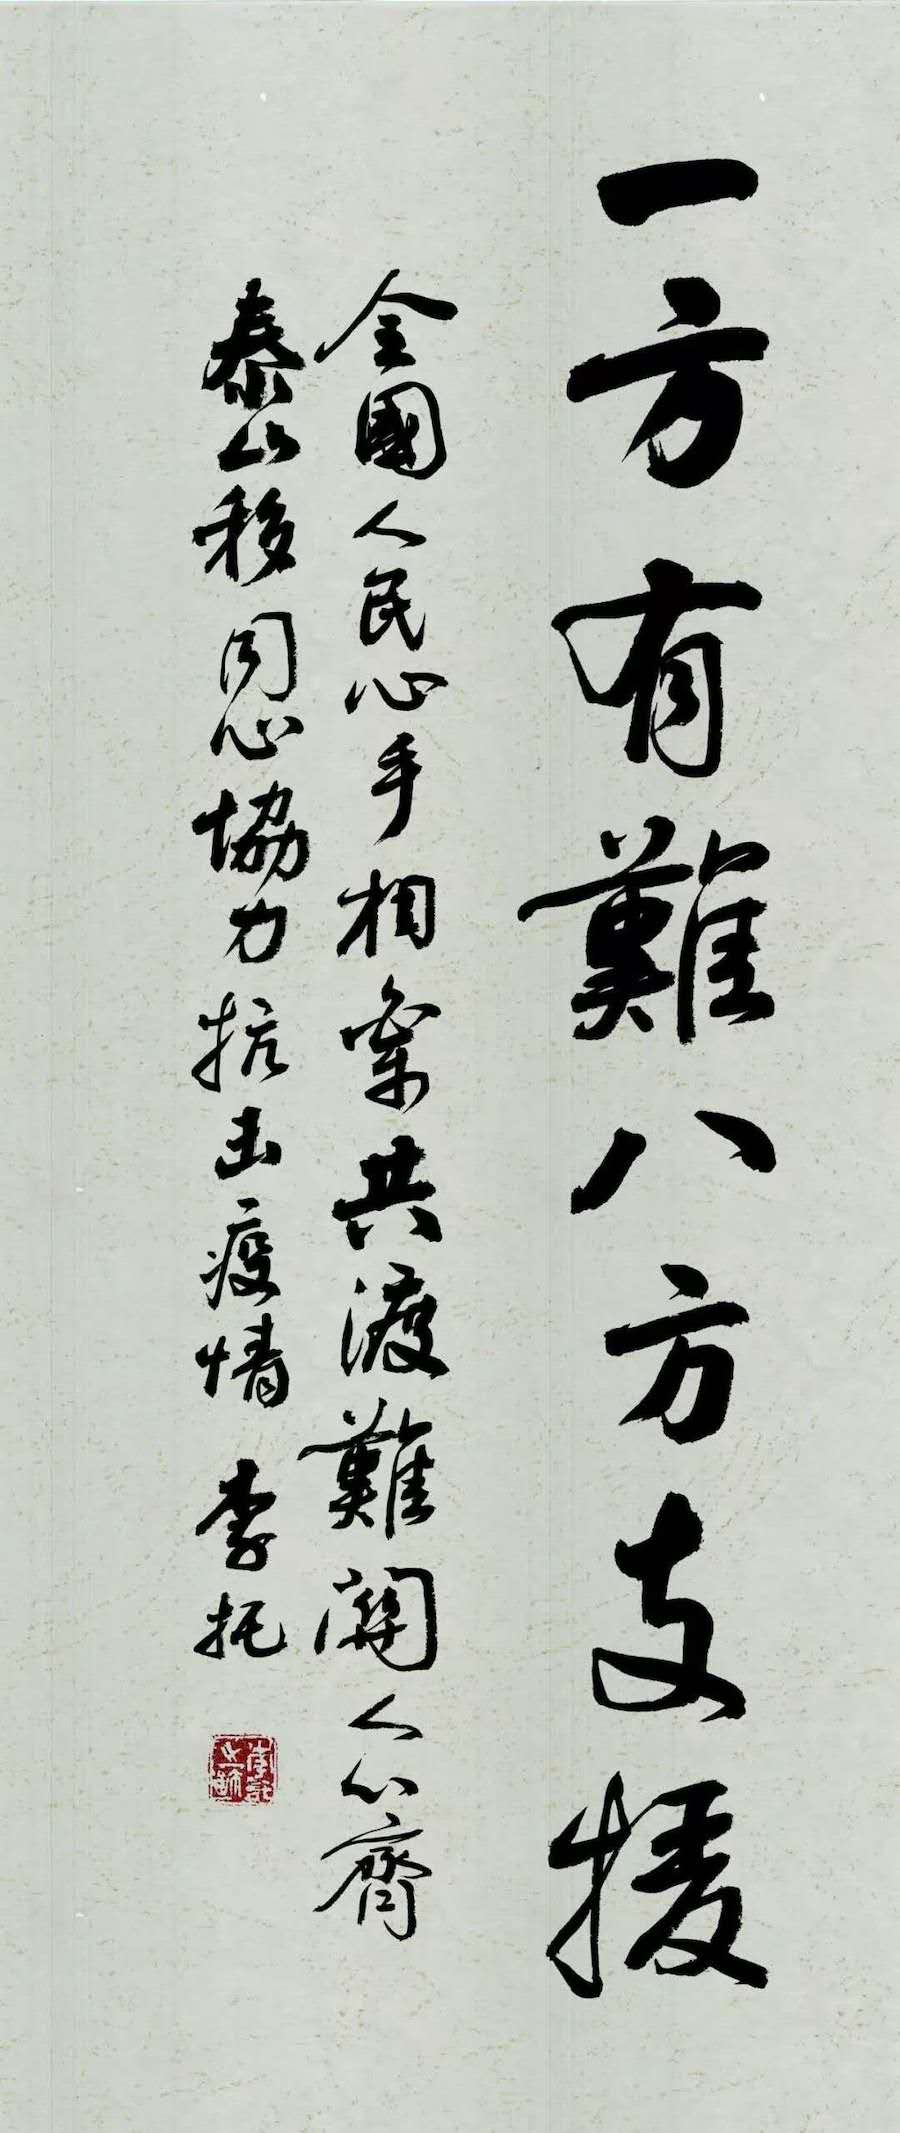 一方有難八方支援
全國人民心手相牽共渡難關人心齊
泰山移同心協力抗击疫情 李托